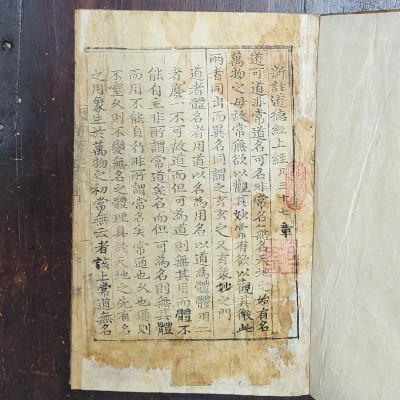 新註道德經上經凡三十七章
道可道非常道名可名非常名無名天地之始有名
萬物之母故常無欲以觀其妙常有欲以觀其徼此
兩者同出而異名同謂之玄玄之又玄衆妙之門
道者體名者用道以名為用名以道為體體用二
者廢一不可故道而但可為道則無其用而體不
能自立非所謂常道矣名而但可為名則無其體
而用不能自行非所謂常名矣常通也久也通則
不窒久則不變無名之體理具於天地之先有名
之用象生於萬物之初常無云者該上常道無名